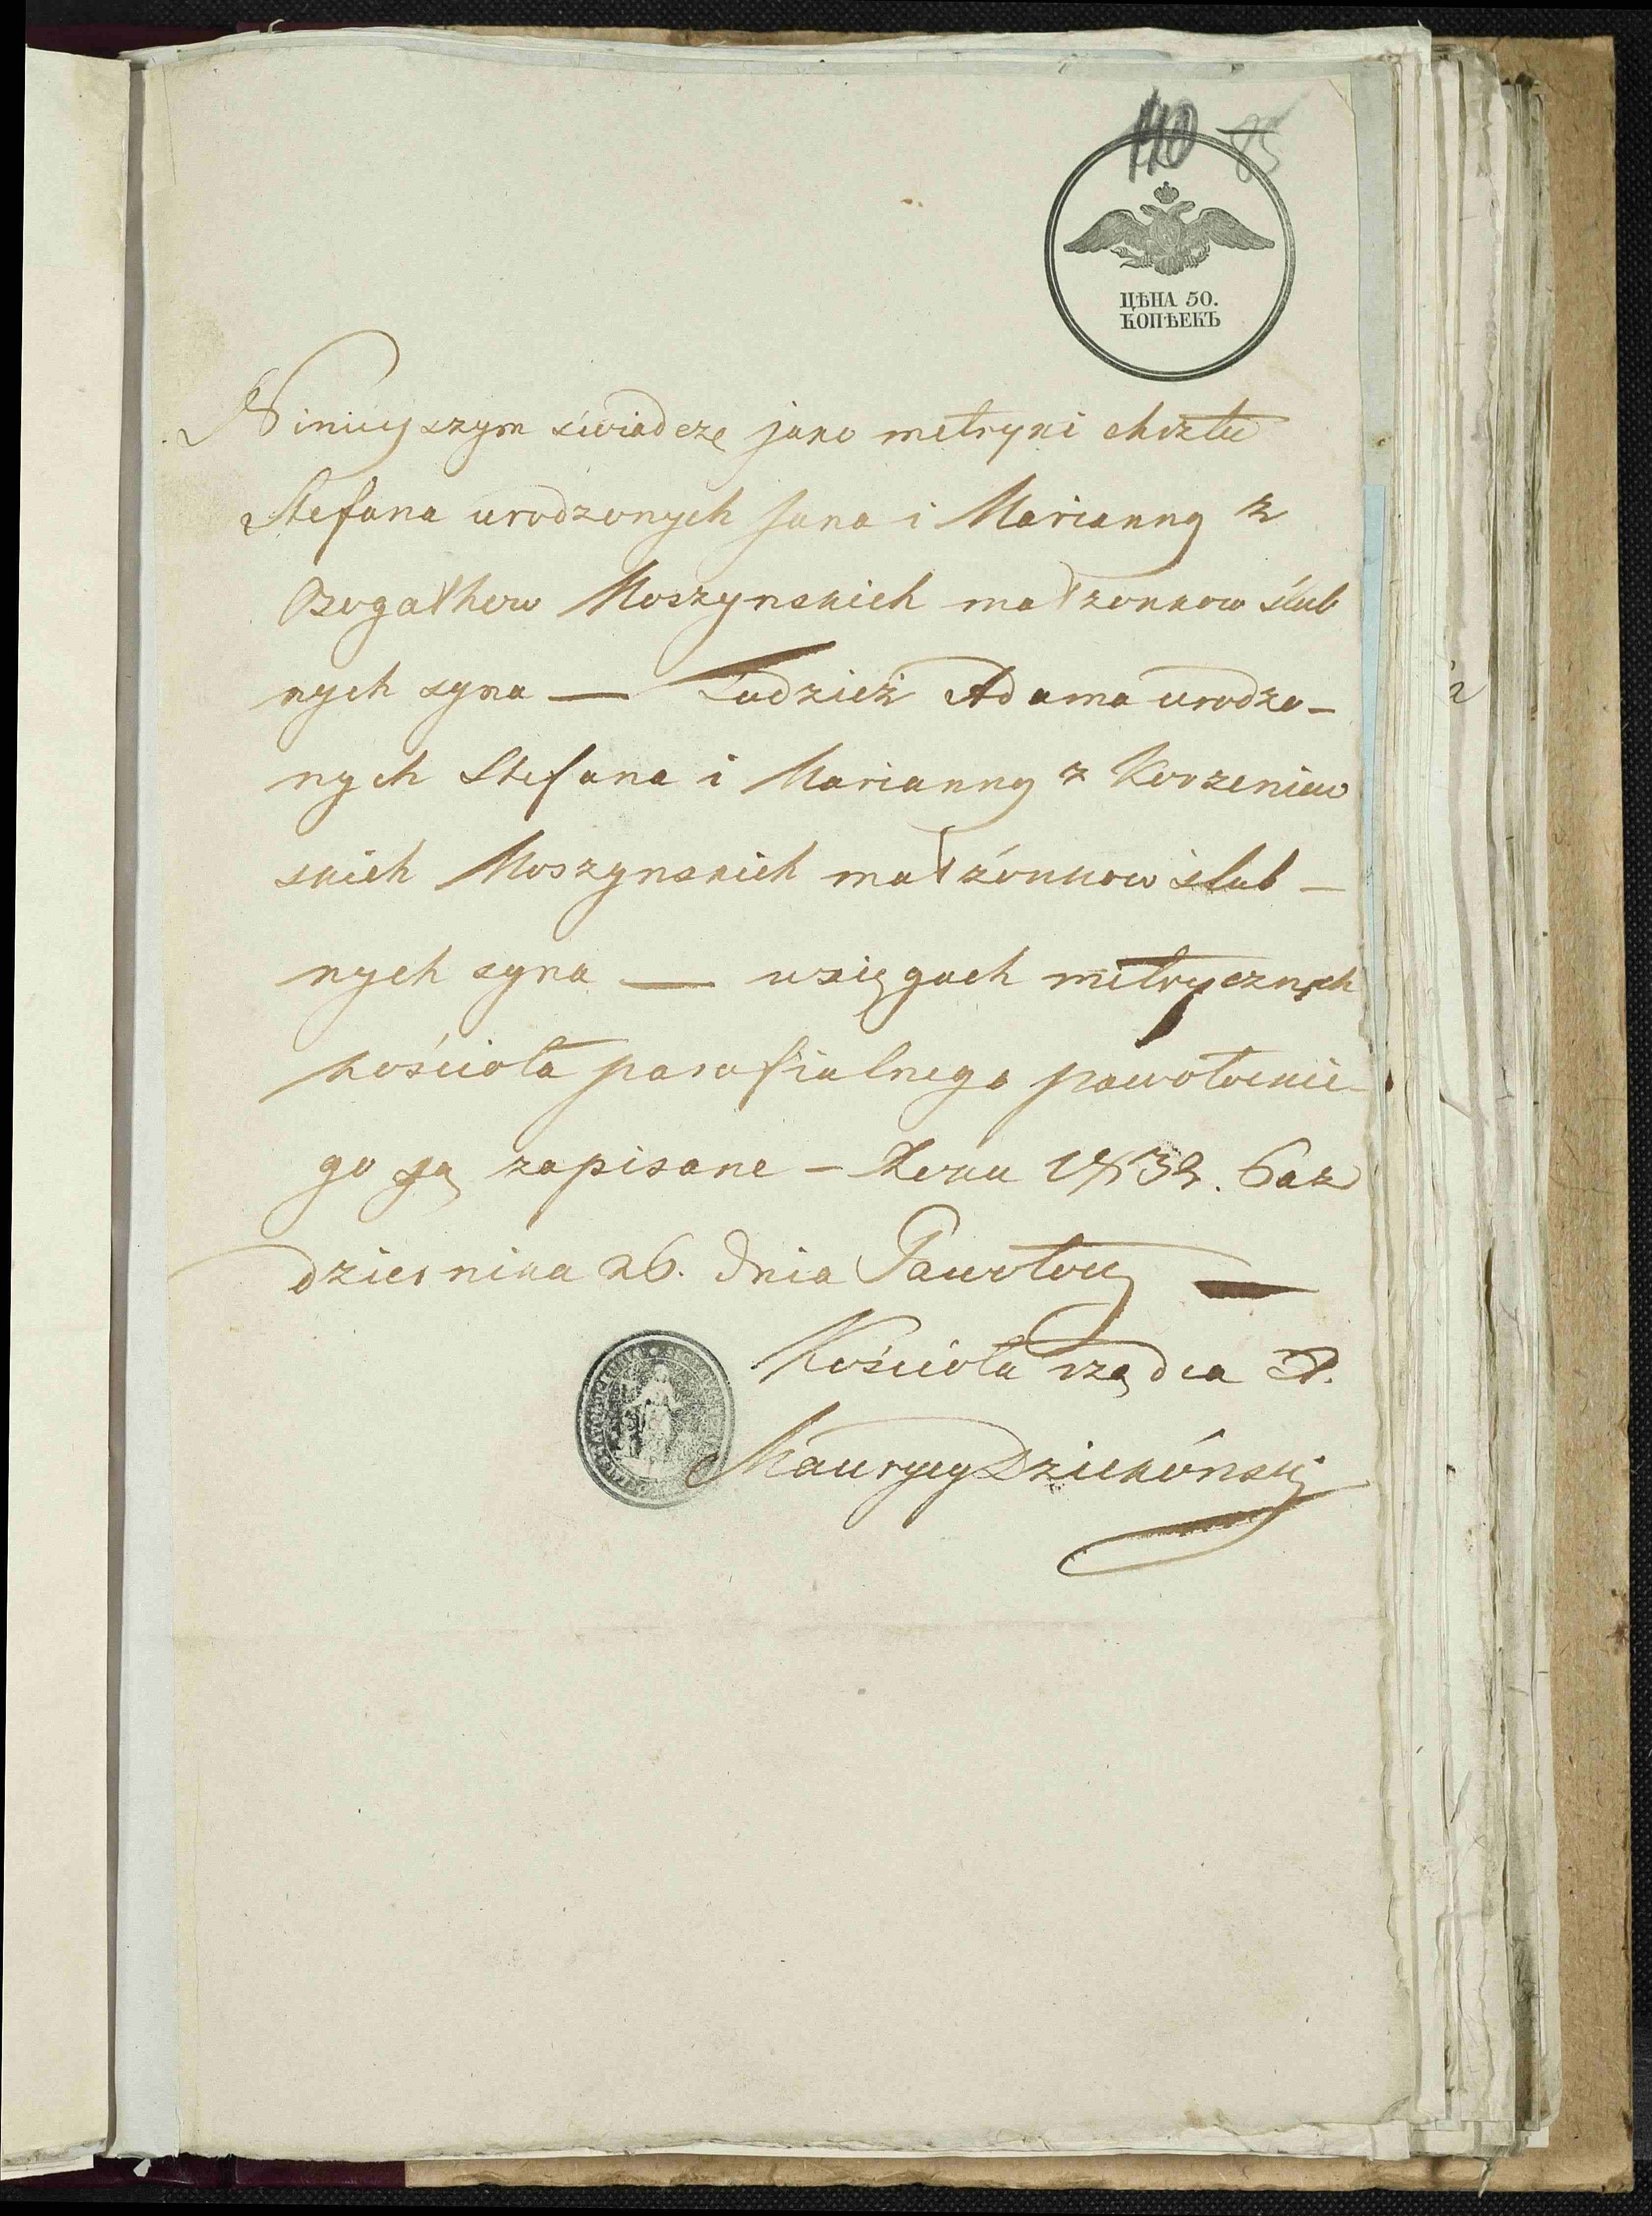 110 85
ЦѢНА 50.
КОПѢЕКЪ
Ninieyszym świadczę jako metryki chrztu
Stefana urodzonych Jana i Marianny z
Bogatkow Moszynskich małzonkow ślub
nych syna — Tudzież Adama urodzo-
nych Stefana i Marianny z Korzeniow
skich Moszynskich małżonkow slub-
nych syna — wxięgach metrycznych
kościoła parafialnego pawołockie-
go są zapisane — Roku 1832. Paz
dziernika 26. dnia Pawołocz —
Kościoła rządca X.
Maurycy Dziekónski